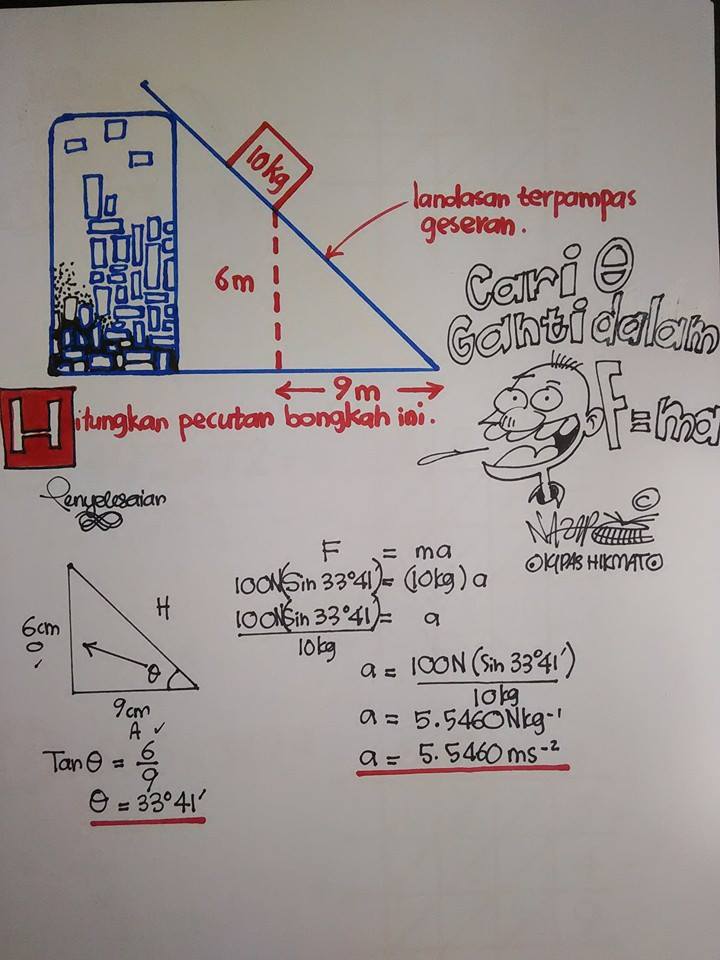 10kg
landasan terpampas
geseran.
6m
9m
Cari θ
Ganti dalam
F = ma
Hitungkan pecutan bongkah ini.
Penyelesaian
©
KIPAS HIKMAT
6cm
O
✓
H
θ
9cm
A ✓
Tan θ = 6/9
θ = 33°41'
F = ma
100N(Sin 33°41') = (10kg) a
100N(Sin 33°41')/10kg = a
a = 100N (Sin 33°41')/10kg
a = 5.5460Nkg⁻¹
a = 5.5460 ms⁻²